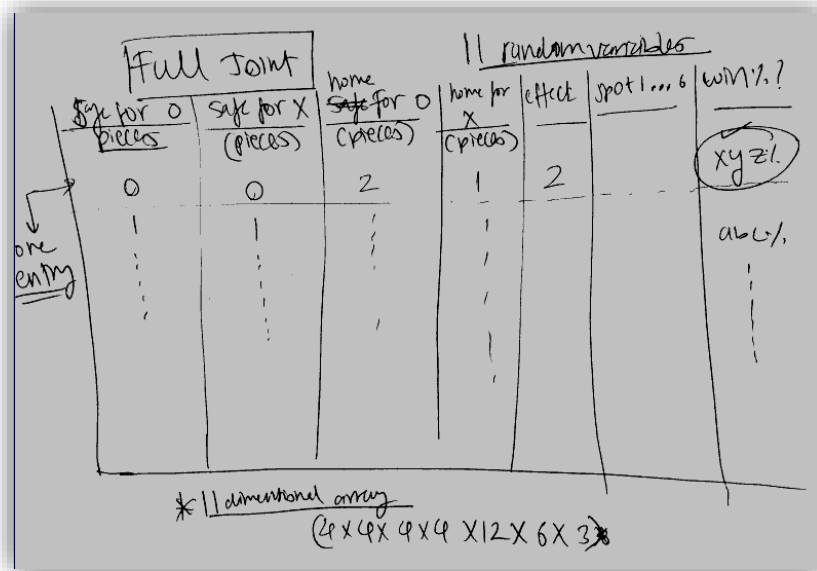 Full Joint
11 random variables
safe for O pieces
safe for X (pieces)
home for O (pieces)
home for X (pieces)
effect
spot 1 ... 6
win %?
0 0 2 1 2 xyz%
one entry
1 1 abc%
* 11 dimentional array
(4 X 4 X 4 X 4 X 12 X 6 X 3)